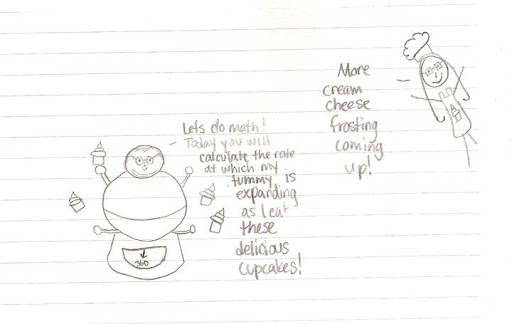 Lets do math!
Today you will
calculate the rate
at which my
tummy is
expanding
as I eat
these
delicious
cupcakes!
More
cream
cheese
frosting
coming
up!
360